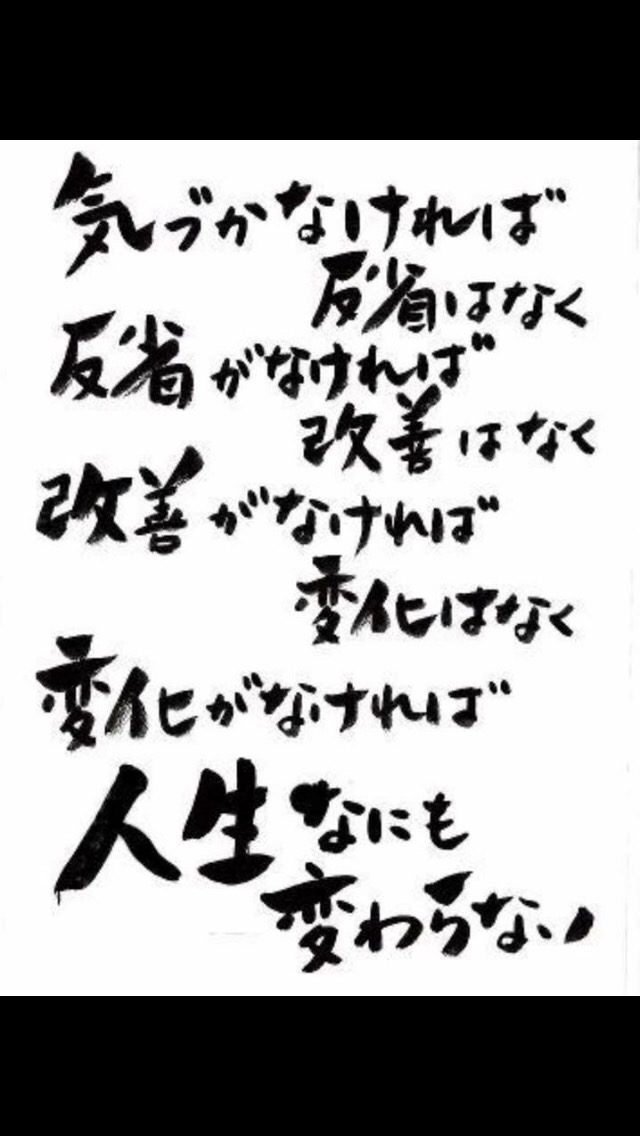 気づかなければ
反省はなく
反省がなければ
改善はなく
改善がなければ
変化はなく
変化がなければ
人生なにも
変わらない